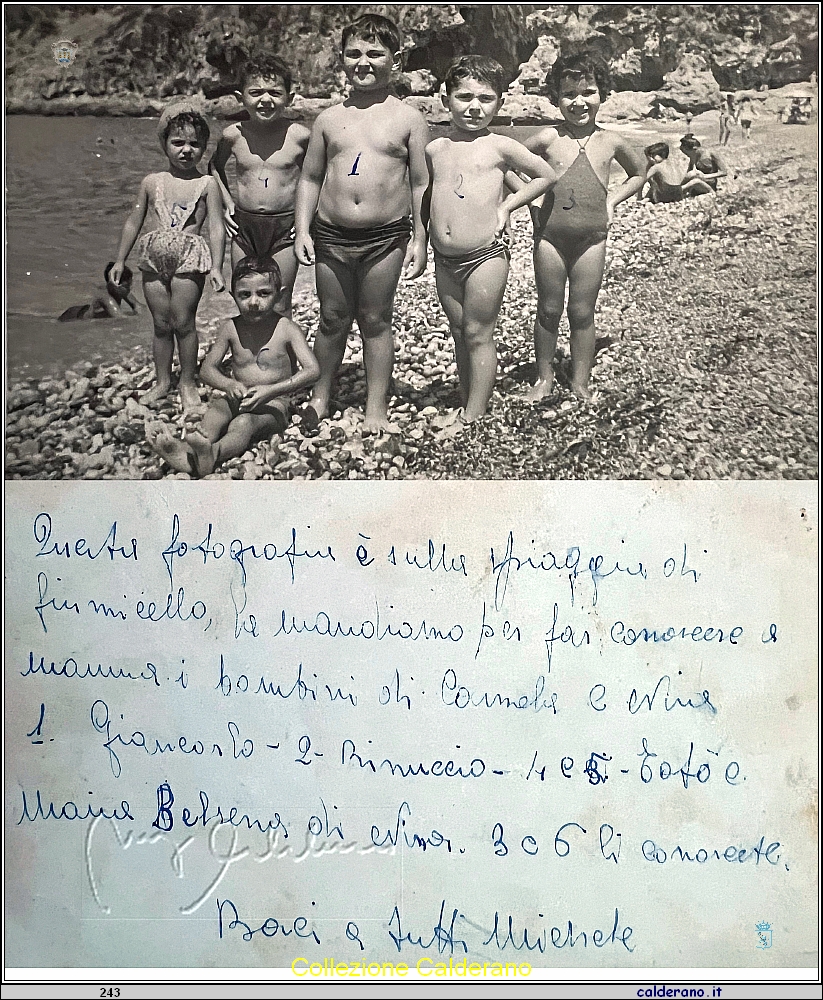 5
4
1
2
3
6
Questa fotografia è sulla spiaggia di
fiumicello, la mandiamo per far conoscere a
mamma i bambini di Carmela e Nina
1. Giancarlo - 2 - Rinuccio - 4 e 5 - Totò e
Maria di Nina. 3 e 6 li conoscete.
Baci a tutti Michele
Collezione Calderano
243
calderano.it